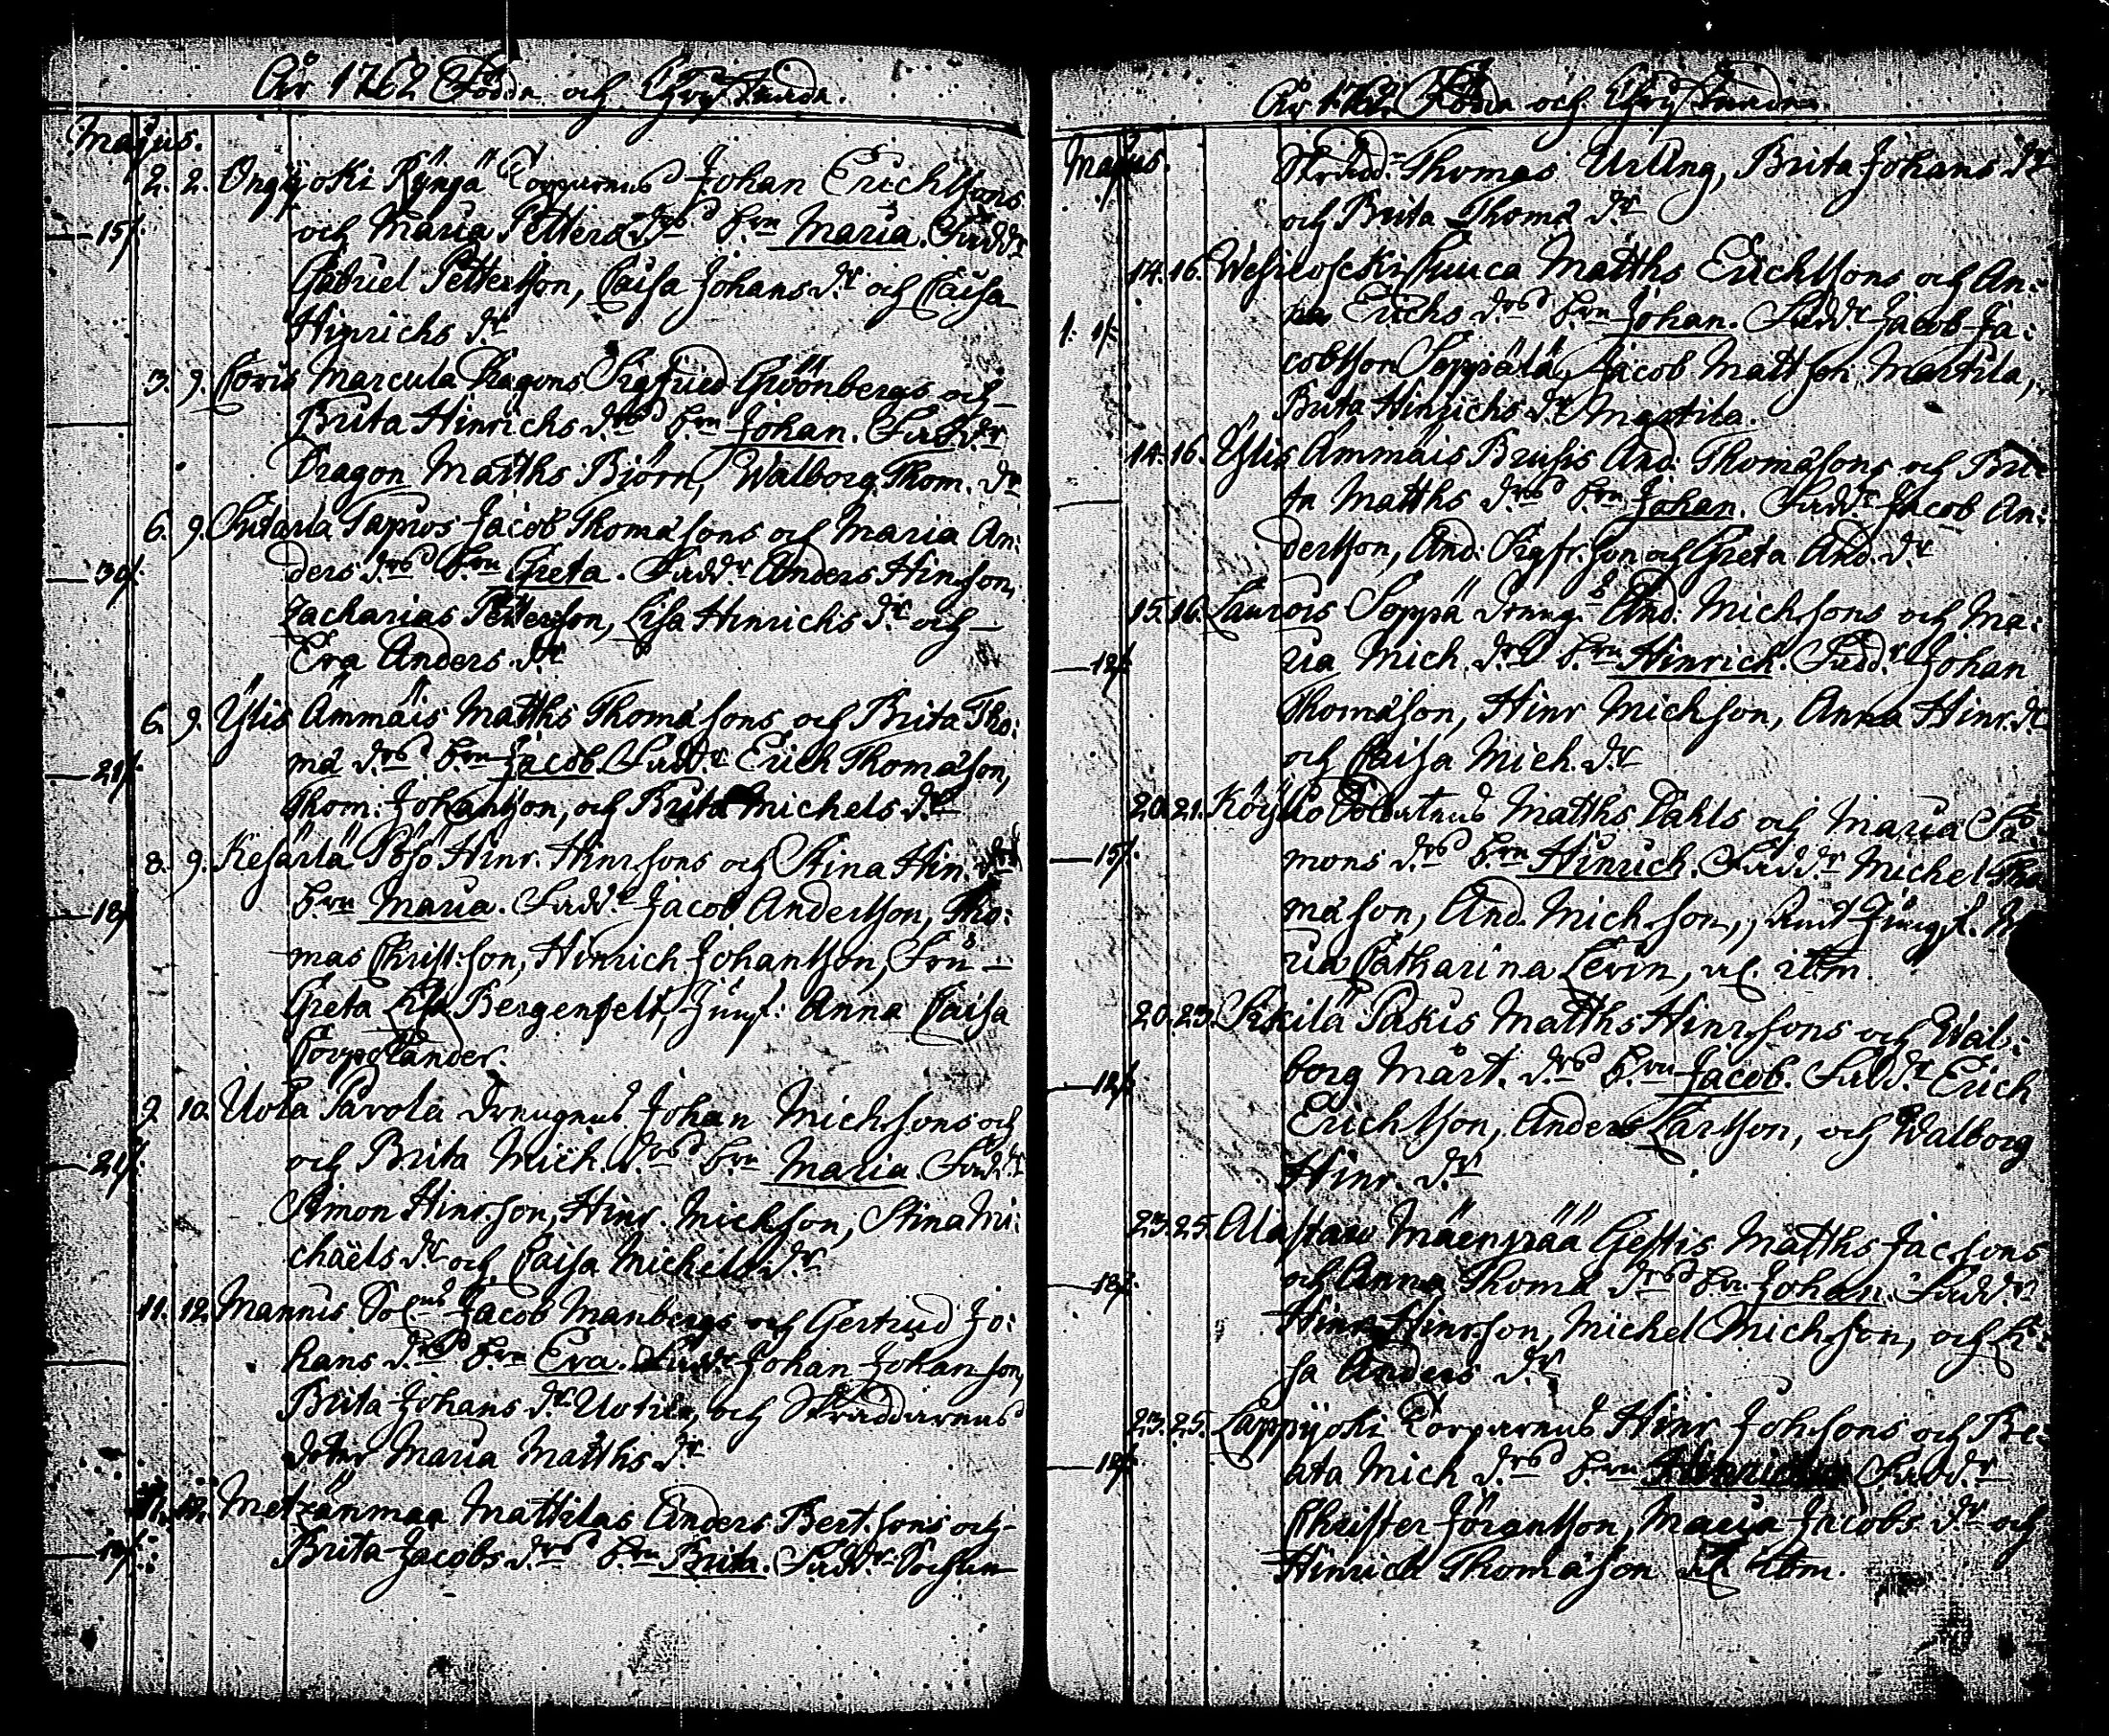 År 1762 Födda och Christnade.
Majus.
2. 2. Ongijoki Rÿngä Torparens Johan Erichssons
15/. och Maria Petters drs brn Maria. Fadd:r
Gabriel Pettersson, Caisa Johans dr och Caisa
Hinrichs dr
3. 9. Coris Marcula Dragons Sigfried Grönbergs och
Brita Hinrichs drs brn Johan. Fadd:r
Dragon Matths Björn, Walborg Thom. dr
6. 9. Tapios Jacob Thomäsons och Maria An:
30/. ders drs brn Greta. Fadd:r Anders Hinrson,
Zacharias Pettersson, Lisa Hinrichs dr och
Eva Anders dr
6. 9. Ylis Ämmäis Matths Thomäsons och Brita Tho:
21/. mä drs brn Jacob. Fadd:r Erich Thomäson,
Thom. Johansson, och Brita Michels dr
8. 9. Kesärlä Pösö Hinr. Hinrsons och Stina Hin. drs
18/. brn Maria. Fadd:r Jacob Andersson, Tho:
mas Christ:son, Hinrich Johansson, Fru
Greta Lisa Bergenfelt, Jungf. Anna Caisa
9 10. Uola Pavola drengens Johan Michsons och
21/. och Brita Mich. drs brn Maria. Fadd:r
Simon Hinrson, Hinr. Michson, Stina Mi:
chaëls dr och Caisa Michels dr
11. 12. Mannis Jacob Manbergs och Gertrud Jo:
hans drs brn Eva. Fadd:r Johan Johanson,
Brita Johans dr Uotila, och Skräddarens
doter Maria Matths dr
11. 12. Metzänmaa Mattilas Anders Bert.sons och
12/. Brita Jacobs drs brn Brita. Fadd:r
År 1762. Födda och Christnade.
Majus. Skrädd: Thomas Urling, Brita Johans dr
och Brita Thomä dr
14. 16. Matths Erichssons och An:
1. 1/. na Erichs drs brn Johan. Fadd:r Jacob Ja:
cobsson Seppälä, Jacob Mattson Martila,
Brita Hinrichs dr Martila.
14. 16. Ylis Ammäis Brusis And. Thomäsons och Bri:
ta Matths drs brn Johan. Fadd:r Jacob An:
dersson, And: Sigfr. son och Greta And. dr
15. 16. Laurois Seppä dreng:s And: Michsons och Ma:
12/. ria Mich. drs brn Hinrich. Fadd:r Johan
Thomäson, Hinr Michson, Anna Hinr. dr
och Caisa Mich. dr
20. 21. Matths Dahls och Maria Sa
15/. mons drs brn Hinrich. Fadd:r Michel Tho
mäson, And. Michson, Jungf. M
ria Catharina Levin,
20. 23. Matths Hinrsons och Wal:
12/. borg Mårt. drs brn Jacob. Fadd:r Erich
Erichsson, Anders Larsson, och Walborg
Hinr. dr
23. 25. Alastaro Mäenpää Gestis Matths Jacsons
18/. och Anna Thomä drs brn Johan. Fadd:r
Hinr Hinrson, Michel Michson, och Li:
sa Anders dr
23. 25. Lappijoki Torparens Hinr Johsons och Be:
18/. ata Mich drs brn Hinrich. Fadd:r
Christer Göransson, Maria Jacobs dr och
Hinrich Thomäson